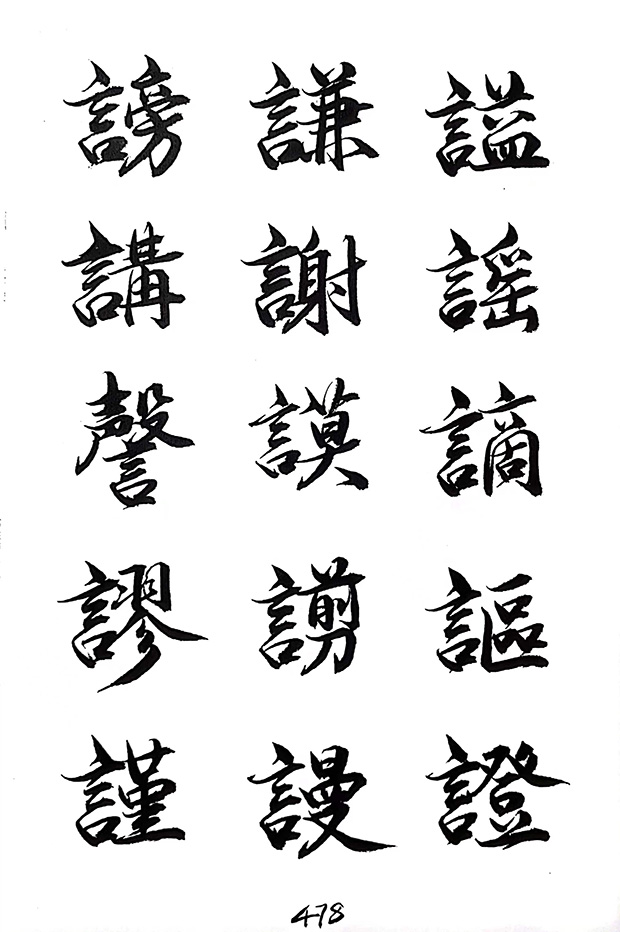 謗 謙 謚
講 謝 謠
謦 謨 謫
謬 謭 謳
謹 謾 證
478